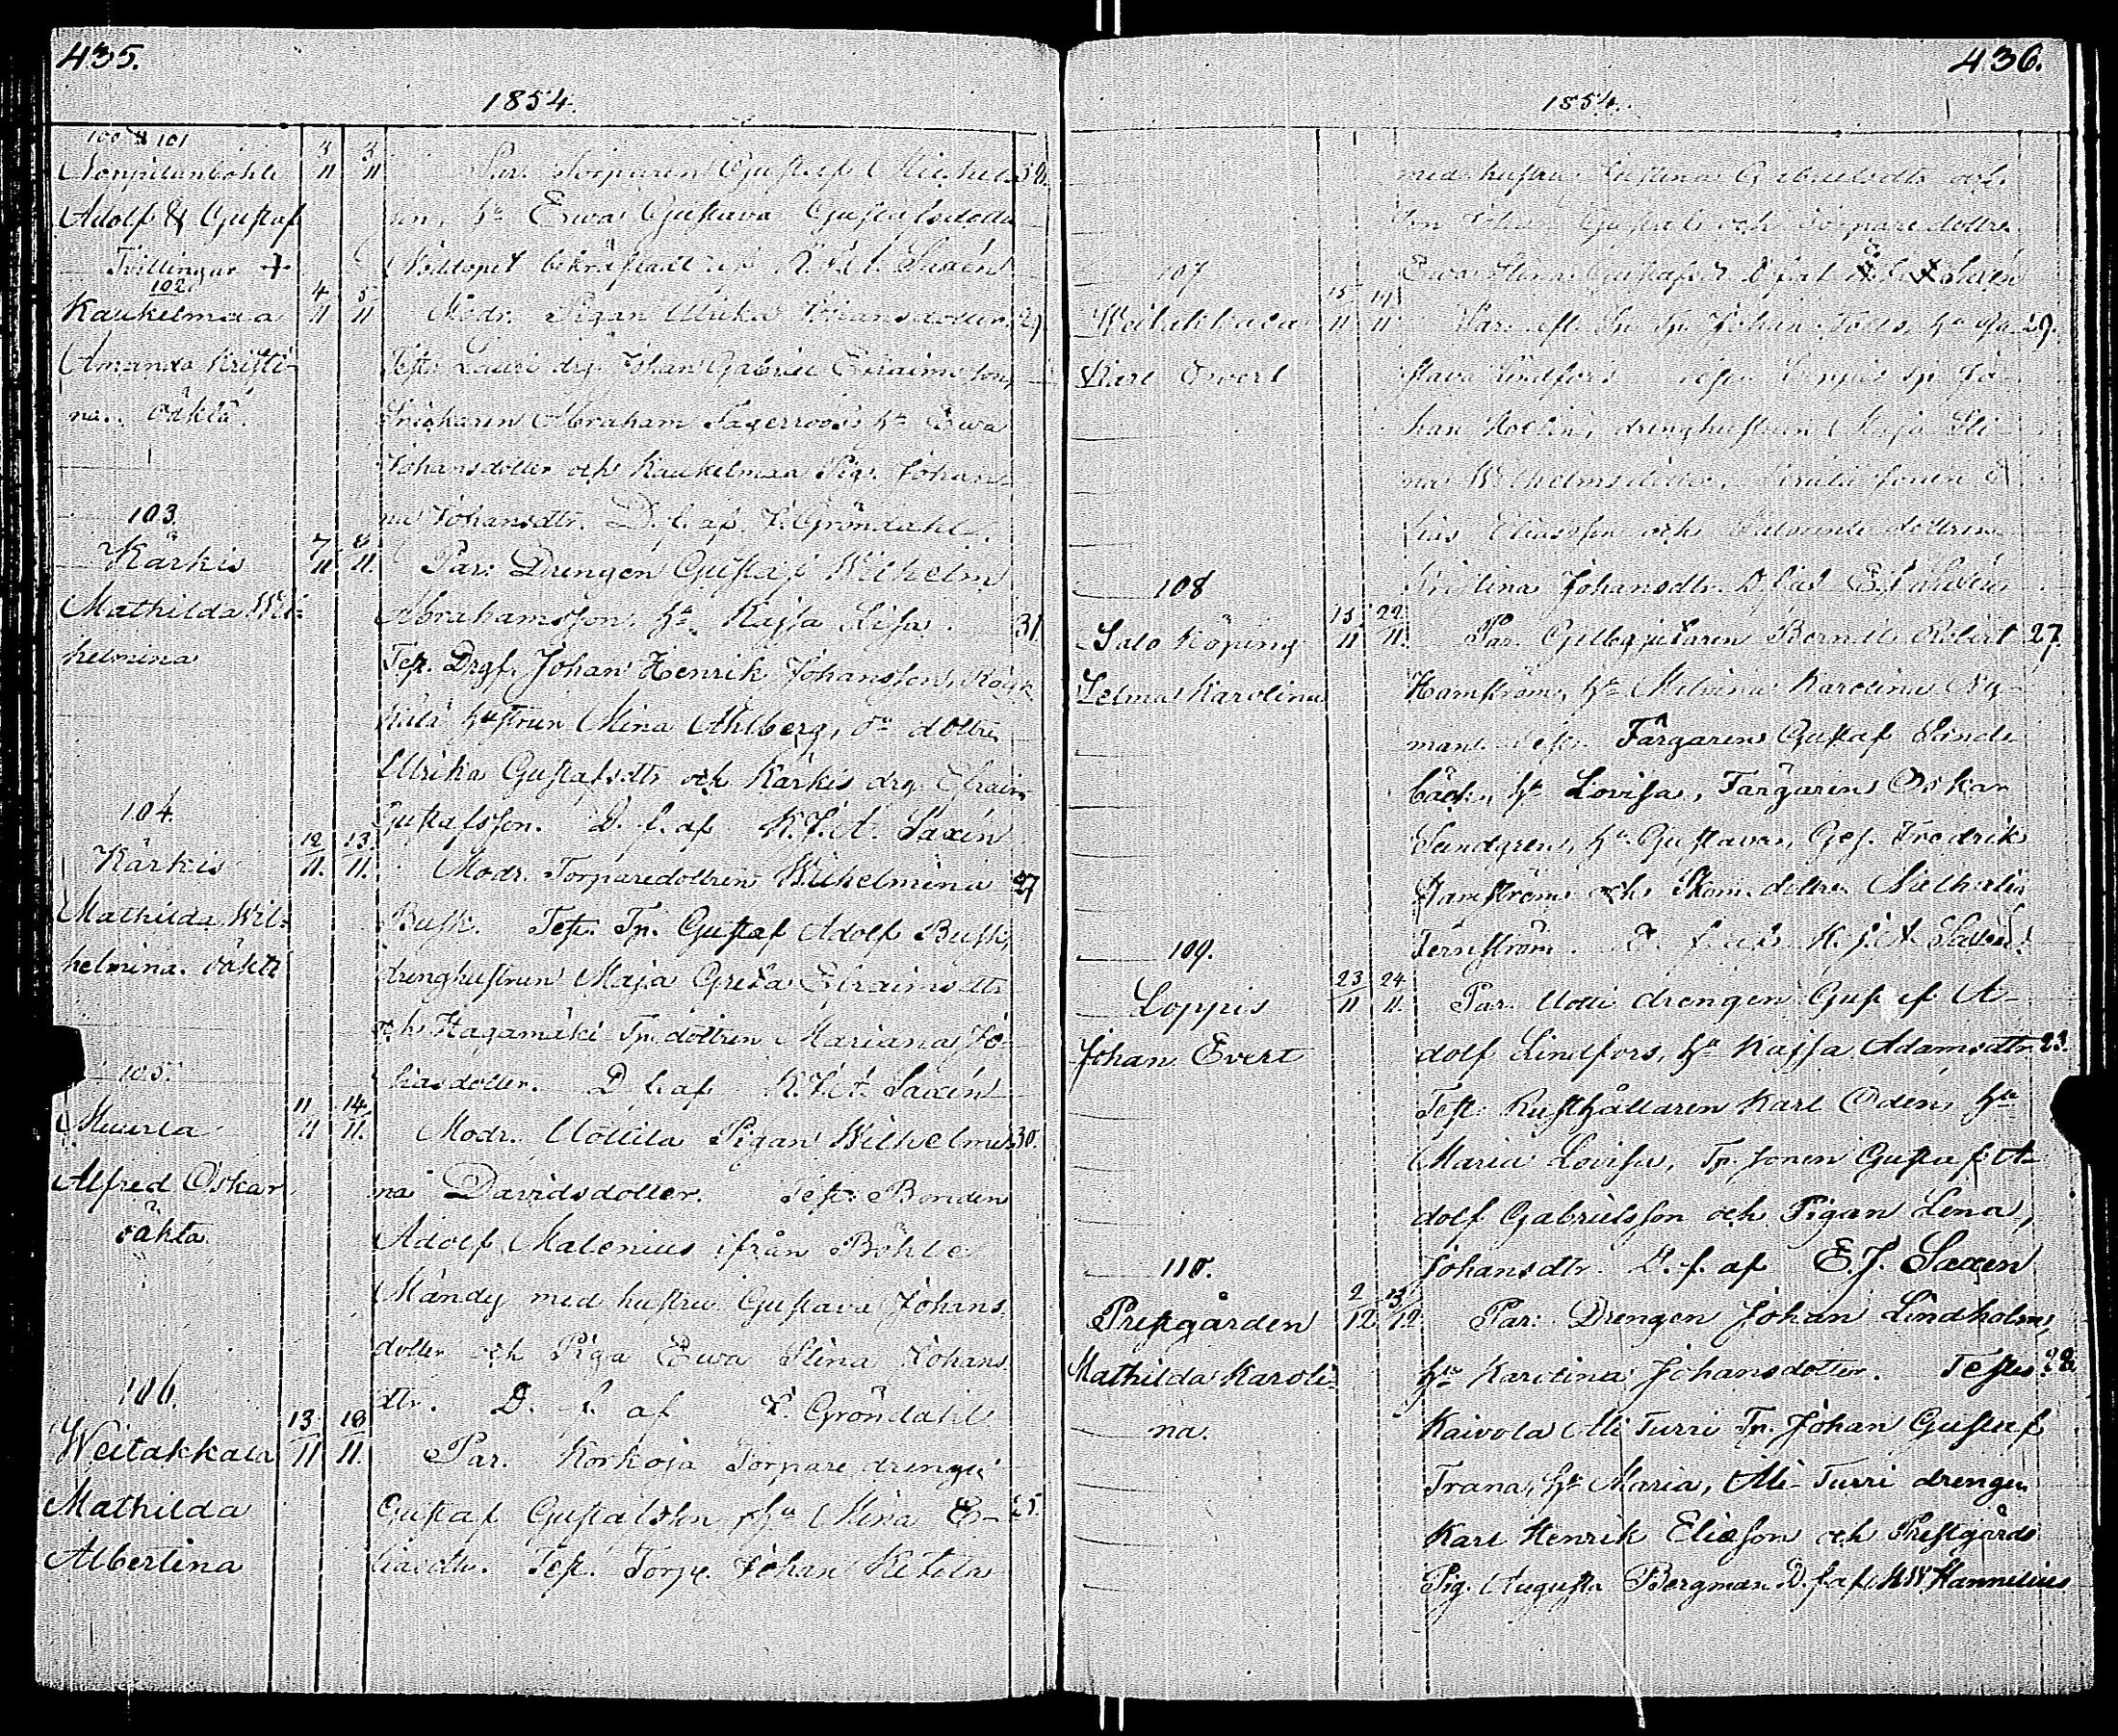 435.
1854.
100 & 101
Adolf & Gustaf
Tvillingar +
3/11 3/11
Par. Torparen Gustaf Michels 32.
son, h:u Ewa Gustava Gustafsdotter
Nöddopet bekräftadt af K.J.A. Saxén
102
Kaukelmaa
Amanda Kristi-
na. oäkta.
4/11 5/11
Modr. Pigan Ulrika Johansdotter. 29
Test. Lauri drg. Johan Gabriel Efraims son,
Snickaren Abraham Lagerroos, h:u Ewa
Johansdotter och Kaukelmaa Pig. Johan-
na Johansdtr. D. f. af Gröndahl.
103.
Kärkis
Mathilda Wil-
helmina
7/11 8/11.
Par: Drengen Gustaf Wilhelm
Abrahamsson, h:u Kajsa Lisa. 31.
Test. Drgf. Johan Henrik Johansson,
hustrun Mina Ahlberg, dottren
Ulrika Gustafsdtr och Kärkis drg. Efraim
Gustafsson. D. f. af K.J.A. Saxén
104.
Kärkis
Mathilda Wil-
helmina. oäkta
12/11. 13/11.
Modr. Torparedottren Wilhelmina 27
Busk. Test. Tp. Gustaf Adolf Busk,
drenghustrun Maja Greta Efraimsdtr
och Hagamäki Tp. dottren Mariana Jo-
hansdotter. D. f. af K.J.A. Saxén
105.
Muurla
Alfred Oskar
oäkta
11/11 14/11.
Modr. Uottila Pigan Wilhelmi- 30.
na Davidsdotter. Test. Bonden
Adolf Malenius ifrån Böhle
Måndy med hustru Gustava Johans
dotter och Piga Ewa Stina Johans
dtr. D. f. af Gröndahl
106.
Weitakkala
Mathilda
Albertina
13/11 18/11.
Par. Korkoja Torpare drengen
Gustaf Gustafsson h:u Mina E- 25.
liasdtr. Test. Torp. Johan
436.
1854.
med hustru Justina Gabrielsdtr och
Johan Gustafs och Torpare dottren
Ewa Stina Gustafsd. D f af Saxén
107
Weitakkala
Karl Evert
15/11 19/11
Par. Johan h:u Gu- 29.
stava Lindfors
han drenghustrun Maja Sti-
na Wilhelmsdotter, sonen E-
lias Eliasson och dottren
Kristina Johansdtr. D f af E.J. Saxén
108
Salo Köping
Selma Karolina
15/11 22/11.
Par. Gelbgjutaren Berndt Robert 27.
Hamström, h:u Melvina Karolina Ny-
man. Test. Färgaren Gustaf Sand-
bäck, h:u Lovisa, Färgaren Oskar
Sundgren, h:u Gustava, Ges. Fredrik
Hamström och Skom. dottren Mathilda
Ternström. D. f. af K.J.A. Saxén
109.
Loppis
Johan Evert
23/11 24/11.
Par. Uotti drengen Gustaf A-
dolf Lindfors, h:u Kajsa Adamsdtr. 23.
Test. Rusthållaren Karl Oden, h:u
Maria Lovisa, Tp. sonen Gustaf A-
dolf Gabrielsson och Pigan Lena
Johansdtr. D. f. af E.J. Saxén
110.
Prestgården
Mathilda Karoli-
na.
2/12 3/12
Par. Drengen Johan Lindholm,
h:u Karolina Johansdotter. Testes: 28
Kaivola Ali Turri Tp. Johan Gustaf
Trana, h:u Maria, Ali-Turri drengen
Karl Henrik Eliasson och Prestgårds
Pig. Augusta Bergman. D. f. af Hannelius